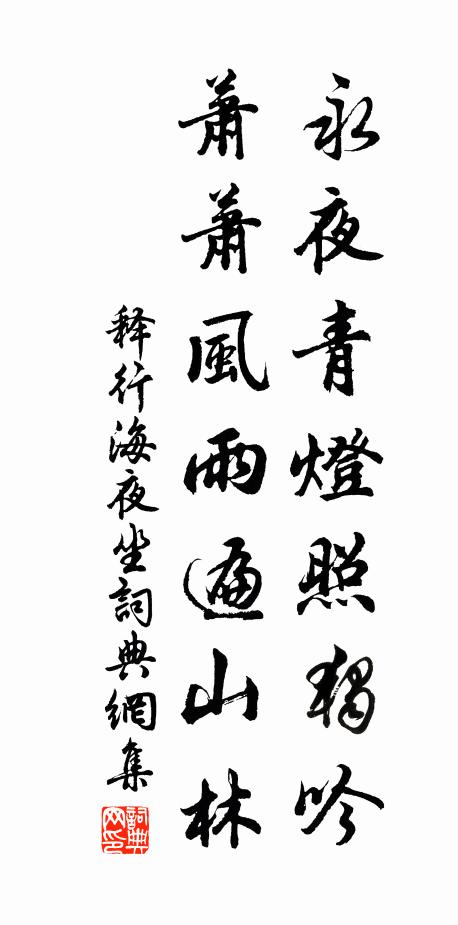 永夜青燈照獨吟
蕭蕭風雨遍山林
释行海夜坐詞典網集
詞典网印